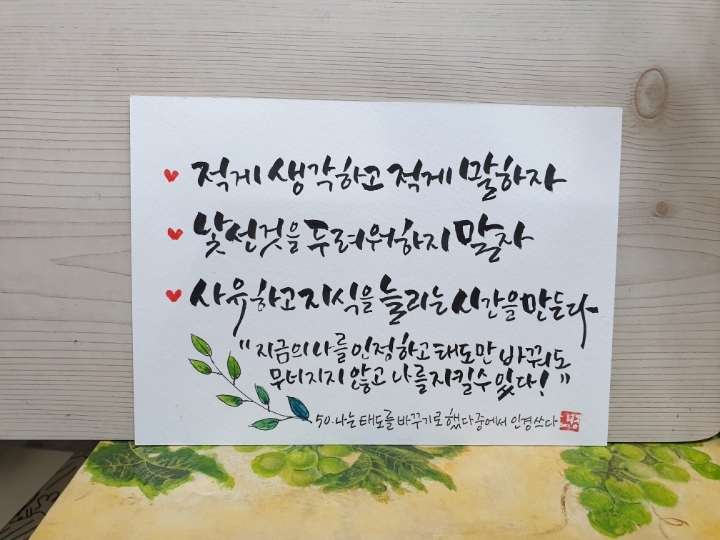 적게 생각하고 적게 말하자
낯선것을 두려워하지 말자
사유하고 지식을 늘리는 시간을 만든다
"지금의 나를 인정하고 태도만 바꿔도
무너지지 않고 나를 지킬수 있다!"
50. 나는 태도를 바꾸기로 했다 중에서 인경쓰다